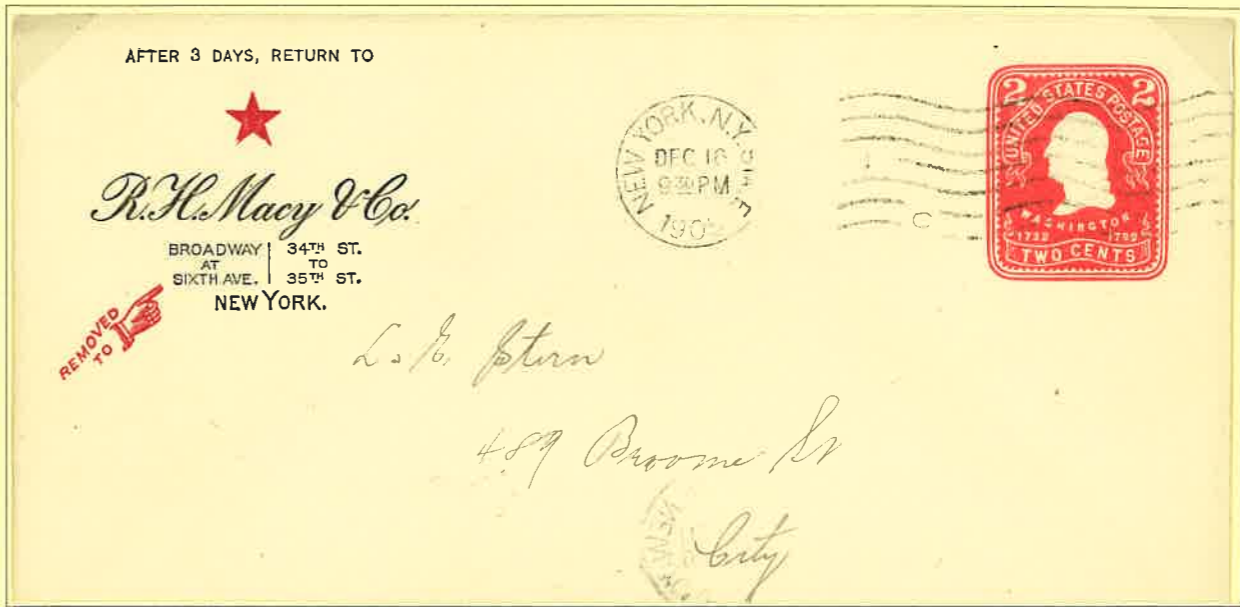 AFTER 3 DAYS, RETURN TO
R.H. Macy & Co.
BROADWAY AT SIXTH AVE. 34TH ST. TO 35TH ST.
NEW YORK.
REMOVED TO
NEW YORK, N.Y.
DEC 16
9 30 PM
190
2 2
UNITED STATES POSTAGE
WASHINGTON
1732 1799
TWO CENTS
C
Stern
489 Broome St
City
NEW